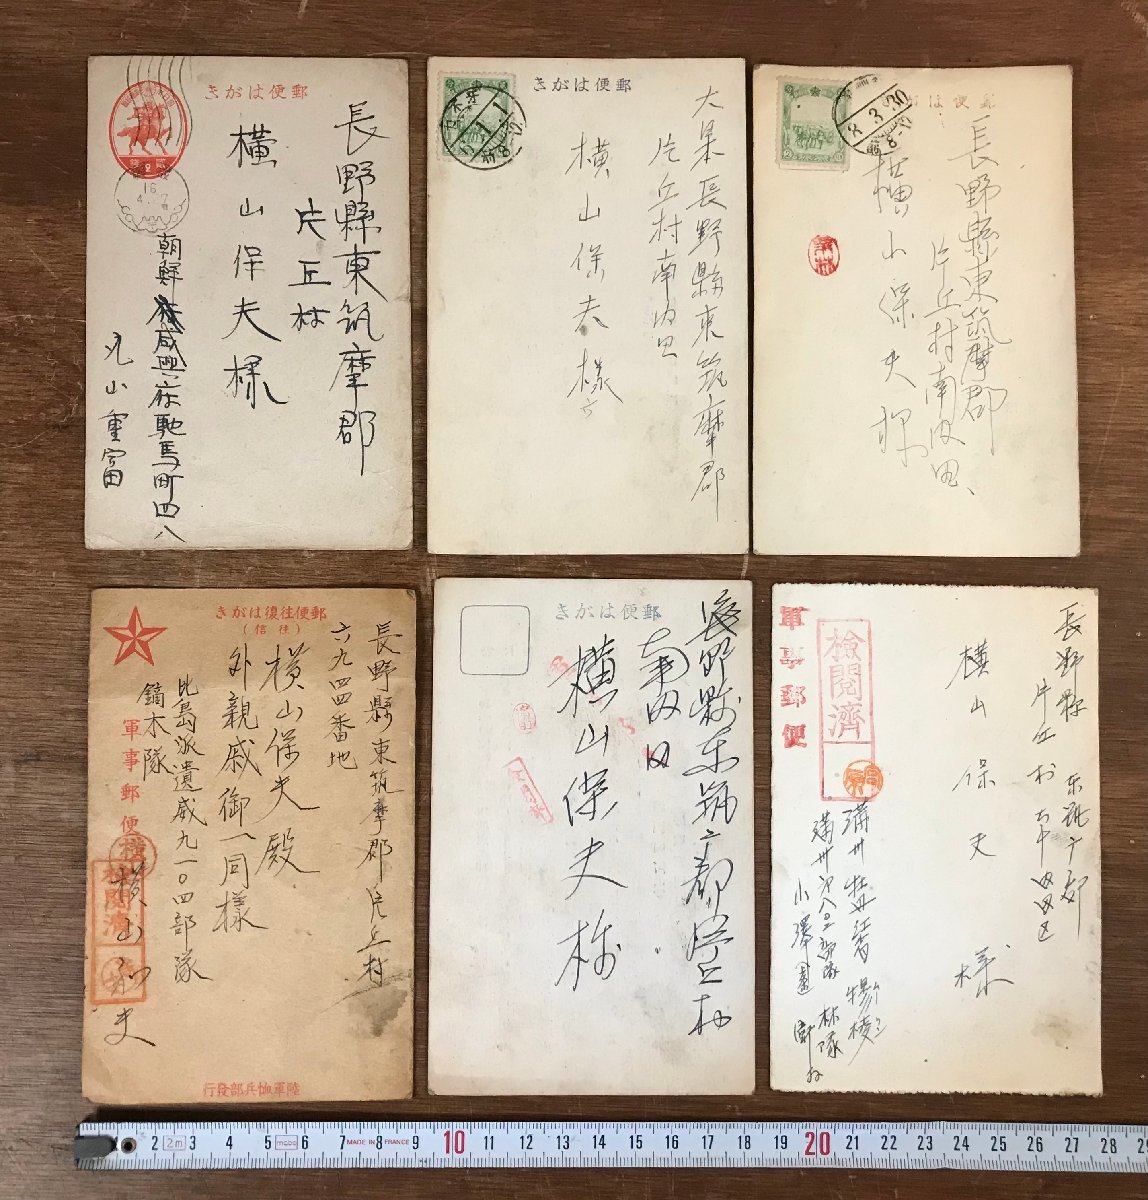 郵便はがき
長野縣東筑摩郡
片丘村
横山保夫様
咸興府馳馬町四八
丸山重富
朝鮮
貳銭
16
4
郵便はがき
長野縣東筑摩郡
片丘村南内田
横山保夫様
郵便はがき
8.3.30
長野縣東筑摩郡
片丘村南内田
横山保夫様
郵便往復はがき
(往信)
長野縣東筑摩郡片丘村
六九四四番地
横山保夫殿
外親戚御一同様
比島派遣威九一〇四部隊
鏑木隊
横山
夫
軍事郵便
検閲濟
陸軍恤兵部發行
郵便はがき
長野縣東筑摩郡片丘村
南内田
横山保夫様
軍事郵便
檢閲濟
長野縣
片丘村
横山保夫様
満州牡丹江省
林隊
小澤
1 2 2m 3 4 5 mabo 6 7 MADE IN FRANCE 8 9 10 11 12 13 14 15 16 17 18 19 20 21 22 23 24 25 26 27 28 29